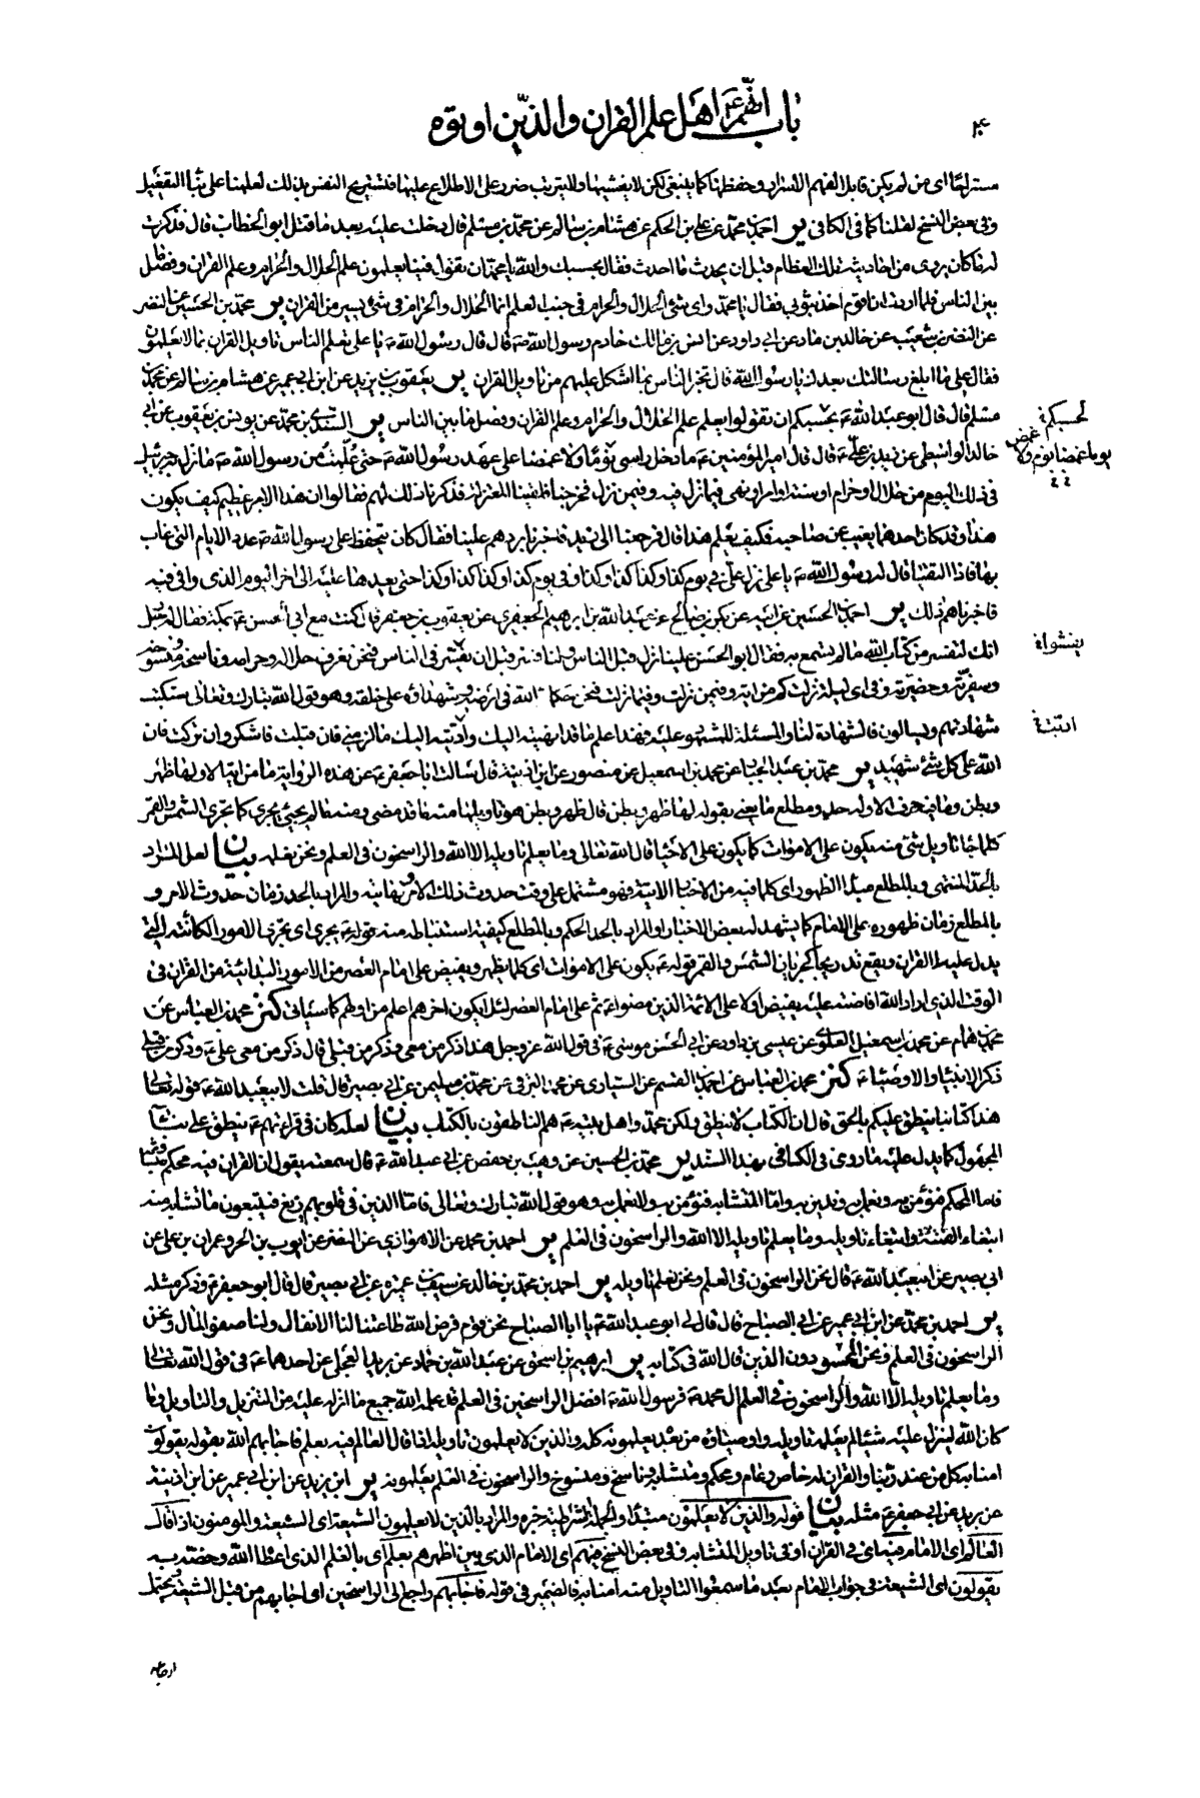 باب انهم ع اهل علم القران والذين اوتوه
مستراحا اى من لم يكن قابلا لفهم الاسرار وحفظها كما ينبغى لكن لا يفشيها ولا يترتب ضرر على الاطلاع عليها فتستريح النفس بذلك لعلمنا على بناء التفعيل
وفى بعض النسخ لقلنا كما فى الكافى ير احمد بن محمد عن على بن الحكم عن هشام بن سالم عن محمد بن مسلم قال دخلت عليه بعد ما قتل ابو الخطاب قال فذكرت
له ما كان يروى من احاديثه تلك العظام قبل ان يحدث ما احدث فقال بحسبك والله يا محمد ان تقول فينا يعلمون علم الحلال والحرام وعلم القران وفصل
بين الناس فلما اردت ان اقوم اخذ بثوبى فقال يا محمد واى شئ الحلال والحرام فى جنب العلم انما الحلال والحرام فى شئ يسير من القران ير محمد بن الحسين عن النضر
عن النضر بن شعيب عن خالد بن ماد عن ابى داود عن انس بن مالك خادم رسول الله ص قال قال رسول الله ص يا على تعلم الناس تاويل القران بما لا يعلمون
فقال على ما ابلغ رسالتك بعدك يا رسول الله قال تخبر الناس بما اشكل عليهم من تاويل القران ير يعقوب بن يزيد عن ابن ابى عمير عن هشام بن سالم عن محمد بن
مسلم قال قال ابو عبد الله ع بحسبكم ان تقولوا يعلم علم الحلال والحرام وعلم القران وفصل ما بين الناس ير السندى بن محمد عن يونس بن يعقوب عن ابى
خالد الواسطى عن زيد بن على ع قال قال امير المؤمنين ع ما دخل راسى نوما ولا غمضا على عهد رسول الله ص حتى علمت من رسول الله ص ما نزل جبرئيل
فى ذلك اليوم من حلال او حرام او سنة او امر او نهى فيما نزل فيه وفيمن نزل فخرجنا فلقينا المعتزلة فذكرنا ذلك لهم فقالوا ان هذا الامر عظيم كيف يكون
هذا وقد كان احدهما يغيب عن صاحبه فكيف يعلم هذا قال فرجعنا الى زيد فاخبرناه بردهم علينا فقال كان يتحفظ على رسول الله ص عدد الايام التى غاب
بها فاذا التقيا قال له رسول الله ص يا على نزل على فى يوم كذا وكذا كذا وكذا وفى يوم كذا وكذا كذا وكذا حتى يعدها عليه الى اخر اليوم الذى وافى فيه
فاخبرناهم ذلك ير احمد بن الحسين عن ابيه عن بكر بن صالح عن عبد الله بن ابرهيم الجعفرى عن يعقوب بن جعفر قال كنت مع ابى الحسن ع بمكة فقال له رجل
انك لتفسر من كتاب الله ما لم يسمع به فقال ابو الحسن علينا نزل قبل الناس ولنا فسر قبل ان يفسر فى الناس فنحن نعرف حلاله وحرامه وناسخه ومنسوخه
وسفريه وحضريه وفى اى ليلة نزلت كم من اية وفيمن نزلت وفيما نزلت فنحن حكماء الله فى ارضه وشهداؤه على خلقه وهو قول الله تبارك وتعالى ستكتب
شهادتهم ويسالون فالشهادة لنا والمسئلة للمشهود عليه فهذا علم ما قد انهيته اليك وادّيته اليك ما لزمنى فان قبلت فاشكر وان تركت فان
الله على كل شئ شهيد ير محمد بن عبد الجبار عن محمد بن اسمعيل عن منصور عن ابن اذينة قال سالت ابا جعفر ع عن هذه الرواية ما من اية الا ولها ظهر
وبطن وما فيه حرف الا وله حد ومطلع ما يعنى بقوله لها ظهر وبطن قال ظهر وبطن هو تاويلها منه ما قد مضى ومنه ما لم يجئ يجرى كما تجرى الشمس والقمر
كلما جاء تاويل شئ منه يكون على الاموات كما يكون على الاحياء قال الله تعالى وما يعلم تاويله الا الله والراسخون فى العلم ونحن نعلمه بيان لعل المراد
بالحد المنتهى وبالمطلع مبدأ الظهور اى كلما فيه من الاخبار الاتية فهو مشتمل على وقت حدوث ذلك الامر ونهايته والمراد بالحد زمان حدوث الامر و
بالمطلع زمان ظهوره على الامام كما يشهد له بعض الاخبار او المراد بالحد الحكم وبالمطلع كيفية استنباطه منه قوله ع يجرى اى تجرى الامور الكائنة التى
يدل عليها القران ويقع تدريجا كجريان الشمس والقمر قوله ع يكون على الاموات اى كلما يظهر ويفيض على امام العصر من الامور البدائية من القران فى
الوقت الذى اراد الله افاضته عليه يفيض اولا على الائمة الذين مضوا ع ثم على امام العصر لئلا يكون اخرهم اعلم من اولهم كما سياتى كنز محمد بن العباس عن
محمد بن همام عن محمد بن اسمعيل العلوى عن عيسى بن داود عن ابى الحسن موسى ع فى قول الله عز وجل هذا ذكر من معى وذكر من قبلى قال ذكر من معى على ع وذكر من قبلى
ذكر الانبياء والاوصياء ع كنز محمد بن العباس عن احمد بن القسم عن السيارى عن محمد البرقى عن محمد بن سليمن عن ابى بصير قال قلت لابى عبد الله ع قوله تعالى
هذا كتابنا ينطق عليكم بالحق قال ان الكتاب لا ينطق ولكن محمد واهل بيته ع هم الناطقون بالكتاب بيان لعله كان فى قراءتهم ع ينطق على بناء
المجهول كما يدل عليه ما روى فى الكافى بهذا السند ير محمد بن الحسين عن وهيب بن حفص عن ابى عبد الله ع قال سمعته يقول ان القران فيه محكم ومتشابه
فاما المحكم فنؤمن به ونعمل به وندين به واما المتشابه فنؤمن به ولا نعمل به وهو قول الله تبارك وتعالى فاما الذين فى قلوبهم زيغ فيتبعون ما تشابه منه
ابتغاء الفتنة وابتغاء تاويله وما يعلم تاويله الا الله والراسخون فى العلم ير احمد بن محمد عن الاهوازى عن النضر عن ايوب بن الحر وعمران بن على عن
ابى بصير عن ابى عبد الله ع قال نحن الراسخون فى العلم ونحن نعلم تاويله ير احمد بن محمد بن خالد عن سيف بن عميرة عن ابى بصير قال قال ابو جعفر ع وذكر مثله
ير احمد بن محمد عن ابن ابى عمير عن ابى الصباح قال قال لى ابو عبد الله ع يا ابا الصباح نحن قوم فرض الله طاعتنا لنا الانفال ولنا صفو المال ونحن
الراسخون فى العلم ونحن المحسودون الذين قال الله فى كتابه ير ابرهيم بن اسحق عن عبد الله بن حماد عن بريد العجلى عن احدهما ع فى قول الله تعالى
وما يعلم تاويله الا الله والراسخون فى العلم ال محمد ع فرسول الله ص افضل الراسخين فى العلم قد علمه الله جميع ما انزله عليه من التنزيل والتاويل وما
كان الله لينزل عليه شيئا لم يعلمه تاويله واوصياؤه من بعده يعلمونه كله والذين لا يعلمون تاويله اذا قال العالم فيه بعلم فاجابهم الله بقوله يقولون
امنا به كل من عند ربنا والقران له خاص وعام ومحكم ومتشابه وناسخ ومنسوخ والراسخون فى العلم يعلمونه ير ابن يزيد عن ابن ابى عمير عن ابن اذينة
عن بريد عن ابى جعفر ع مثله بيان قوله والذين لا يعلمون مبتدأ والجملة الشرطية خبره والمراد بالذين لا يعلمون الشيعة اى الشيعة والمومنون اذا قال
العالم اى الامام فيه اى فى القران او فى تاويل المتشابه وفى بعض النسخ فيهم اى الامام الذى بين اظهرهم بعلم اى بالعلم الذى اعطاه الله وخصه به
يقولون اى الشيعة فى جواب الامام بعد ما سمعوا التاويل منه امنا به فالضمير فى قوله فاجابهم راجع الى الراسخين اى اجابهم من قبل الشيعة ويحتمل
لحسبكم
يوما غمضا نوم ولا غمض
يفشوا
اثبته
ارجاعه